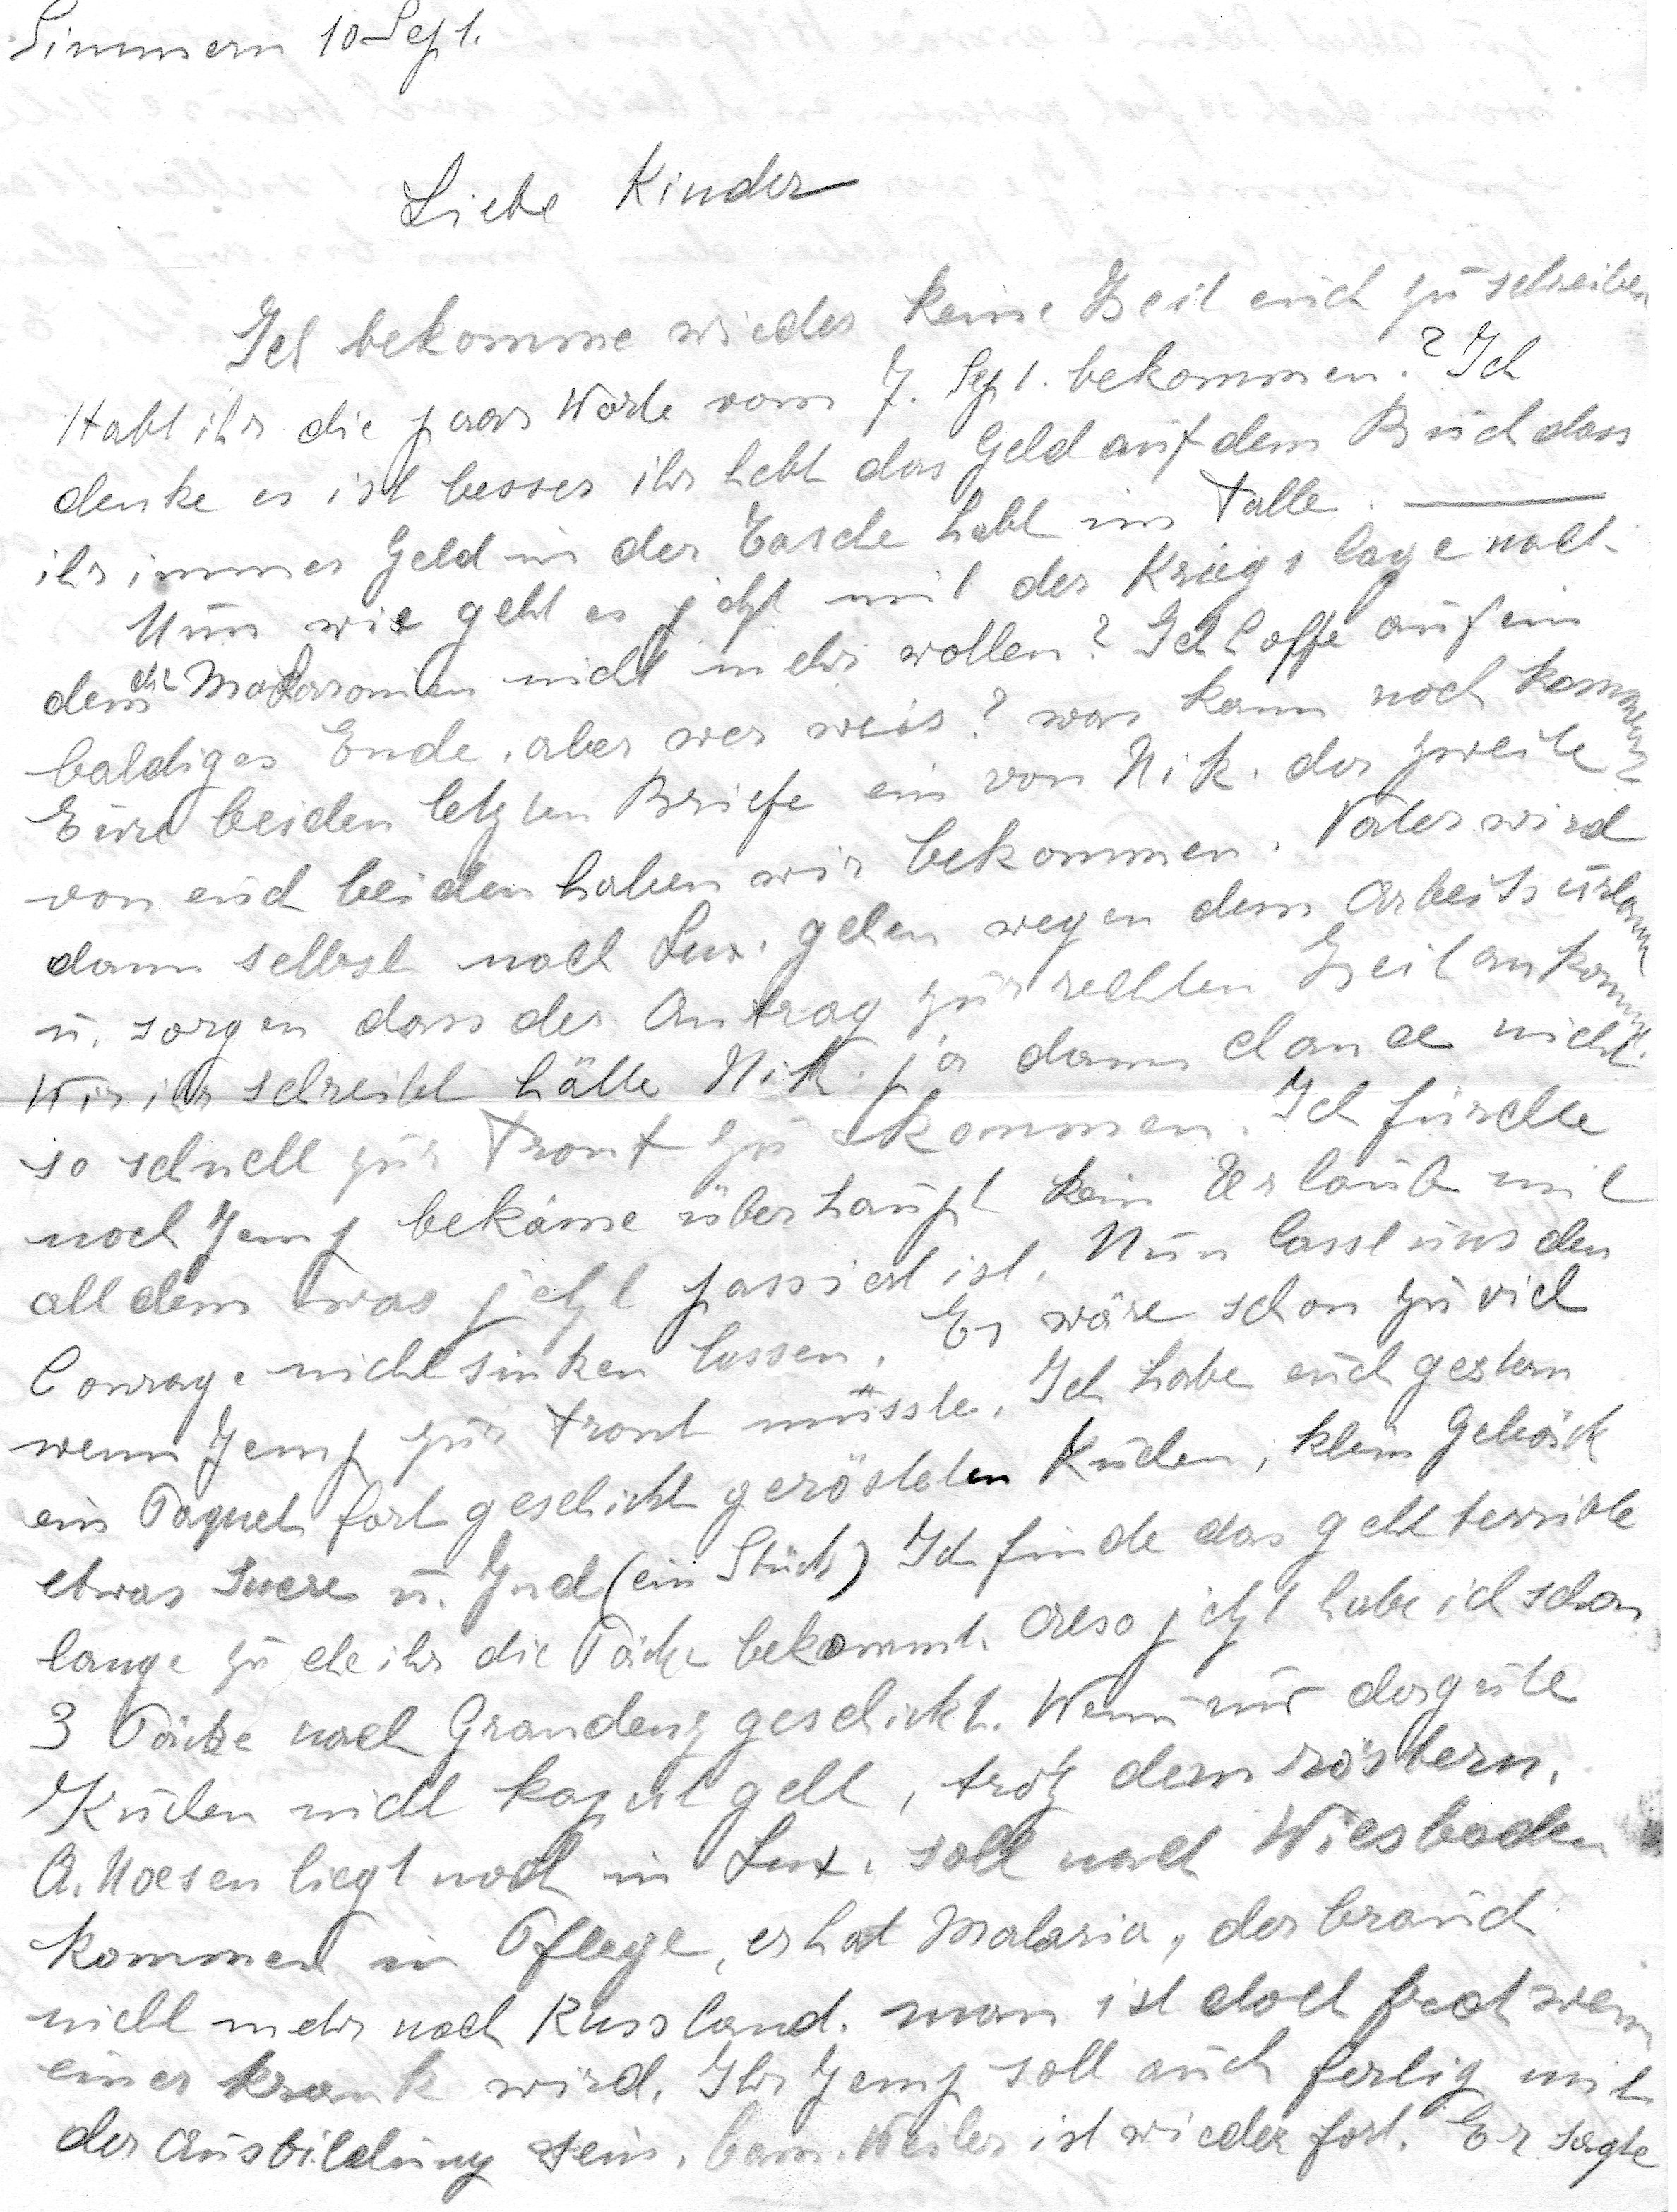 Simmern 10 Sept.
Liebe Kinder
Ich bekomme wieder keine Zeit euch zu schreiben
Habt ihr die paar Worte vom 7. Sept. bekommen? Ich
denke es ist besser ihr hebt das Geld auf dem Buch dass
ihr immer Geld in der Tasche habt im Falle. ———
Nun wie geht es jetzt mit der Kriegslage nach-
dem die Makaronien nicht mehr wollen? Ich hoffe auf ein
baldiges Ende, aber wer weis? was kann noch kommen?
Eure beiden letzten Briefe ein von Nik. der zweite
von euch beiden haben wir bekommen. Vater wird
dann selbst nach Lux. gehen wegen dem Arbeitsurlaub
u. sorgen dass der Antrag zur rechten Zeit ankommt.
Wie ihr schreibt hätte Nik. ja dann chance nicht
so schnell zur Front zu kommen. Ich fürchte
noch Jemp bekäme überhaupt kein Urlaub mit
all dem was jetzt passiert ist. Nun lasst uns den
Courage nicht sinken lassen. Es wäre schon zu viel
wenn Jemp zur Front müsste. Ich habe euch gestern
ein Paquet fort geschickt gerösteten Kuchen, klein Gebäck
etwas Sucre u. (ein Stück) Ich finde das geht terrible
lange zu ehe ihr die Päcke bekommt. Also jetzt habe ich schon
3 Päcke nach Graudenz geschickt. Wenn nur der gute
Kuchen nicht kaput geht, trotz dem röstern.
A. Noesen liegt noch in Lux. soll nach Wiesbaden
kommen in Pflege, er hat Malaria, der brauch
nicht mehr nach Russland. man ist doch froh wenn
einer krank wird. Ihr Jemp soll auch fertig mit
der Ausbildung sein. Cam. Weiler ist wieder fort. Er sagte